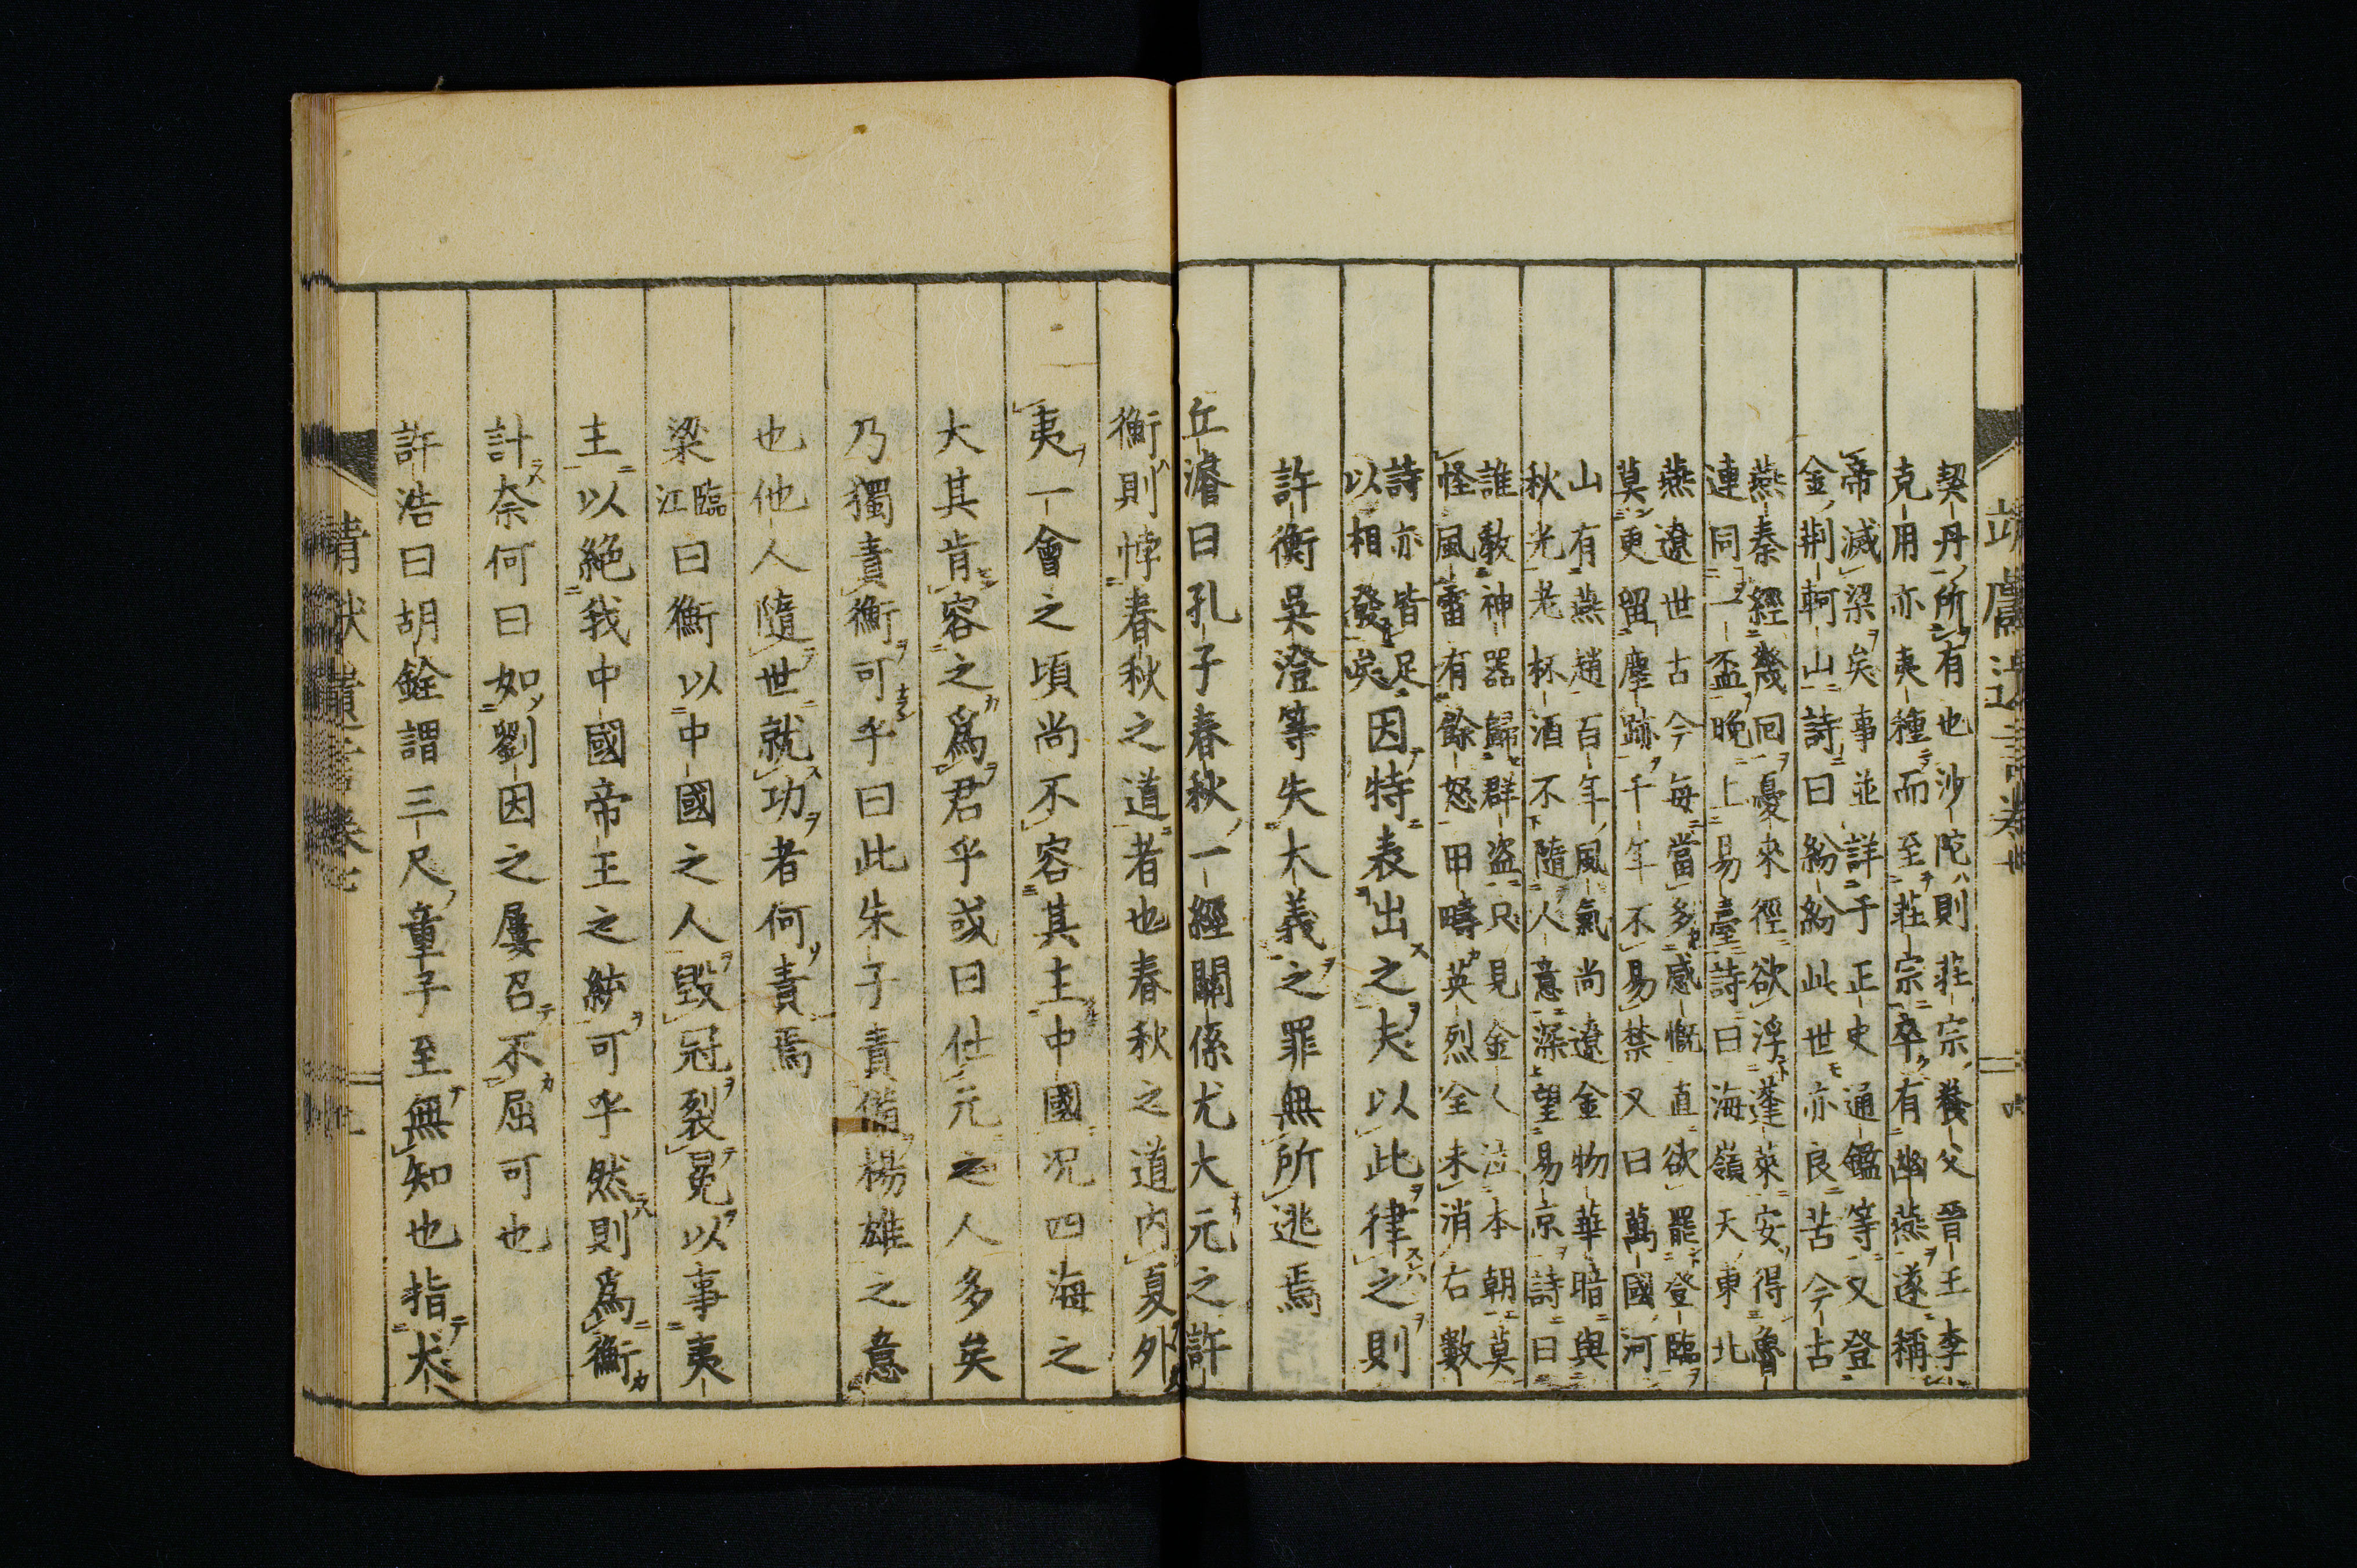 契丹所有也沙陀則莊宗養父晉王李
克用亦夷種而至莊宗卒有幽燕遂稱
帝滅梁矣事並詳于正史通鑑等又登
金荊軻山詩曰紛紛此世亦良苦今古
燕秦經幾回憂來徑欲浮蓬萊安得魯
連同一盃晚上易臺詩曰海嶺天東北
燕遼世古今每當多感慨直欲罷登臨
莫更留塵跡千年不易禁又曰萬國河
山有燕趙百年風氣尚遼金物華暗與
秋光老杯酒不隨人意深望易京詩曰
誰教神器歸群盜只見金人泣本朝莫
怪風雷有餘怒田疇英烈全未消右數
詩亦皆足
以相發矣因特表出之夫以此律之則
許衡吳澄等失大義之罪無所逃焉
丘濬曰孔子春秋一經關係尤大元之許
衡則悖春秋之道者也春秋之道内夏外
夷一會之頃尚不容其主中國況四海之
大其肯容之爲君乎或曰仕元之人多矣
乃獨責衡可乎曰此朱子責備楊雄之意
也他人隨世就功者何責焉
梁臨江曰衡以中國之人毀冠裂冕以事夷
主以絕我中國帝王之統可乎然則爲衡
計奈何曰如劉因之屢召不屈可也
許浩曰胡銓謂三尺童子至無知也指犬